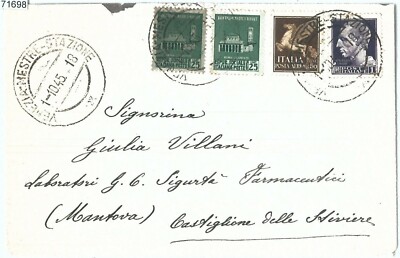 71698
VENEZIA-MESTRE-STAZIONE
1-10.45.18
ITALIA
POSTA AEREA
Signorina
Giulia Villani
Laboratori G. C. Sigurtà Farmaceutici
(Mantova) Castiglione delle Stiviere